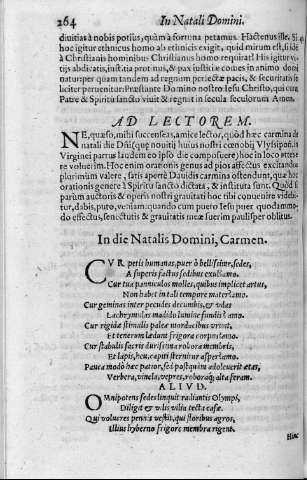 264 In Natali Domini.
diuitias à nobis potius, quàm à fortuna petamus. Hactenus ille. Si
hoc igitur ethnicus homo ab ethnicis exigit, quid mirum est, si idé
à Christianis hominibus Christianus homo requirat? His igitur vi-
tijs abdicatis, iustitia protinus, & pax iustitiæ comes in animo domi
natur: per quam tandem ad regnum perfectæ pacis, & securitatis fe
liciter peruenitur: Præstante Domino nostro Iesu Christo, qui cum
Patre & Spiritu sancto viuit & regnat in secula seculorum Amen.
AD LECTOREM.
NE, quæso, mihi succenseas, amice lector, quòd hæc carmina de
natali die Dñi (que nouitij huius nostri cœnobij Vlyssipoñ. in
Virginei partus laudem eo ipso die composuere) hoc in loco attexe
re voluerim. Hoc enim orationis genus ad pios affectus excitandos
plurimùm valere, satis apertè Dauidis carmina ostendunt, quæ hoc
orationis genere à Spiritu sancto dictata, & instituta sunt. Quòd si
parùm auctoris & operis nostri grauitati hoc tibi conuenire videbi-
tur, dabis, puto, veniam: quando cum puero Iesu puer quodammo-
do effectus, senectutis & grauitatis meæ suerim paulisper oblitus.
In die Natalis Domini, Carmen.
CVR petis humanas, puer ô bellissime, sedes,
A superis factus sedibus exul? amo.
Cur tua panniculos molles, quibus implicet artus,
Non habet in tali tempore mater? amo.
Cur geminas inter pecudes decumbis, & vdas
Lachrymulas madido lumine fundis? amo.
Cur rigidæ stimulis paleæ mordacibus vrunt,
Et tenerum lædunt frigora corpus? amo.
Cur stabulis sacris durissima robora membris,
Et lapis, heu, capiti sternitur asper? amo.
Pauca modò hæc patior, sed postquàm adoleuerit ætas,
Verbera, vincla, vepres, robora, alta feram.
ALIVD.
OMnipotens sedes linquit radiantis Olympi,
Diligit & vilis vilia tecta casæ.
Qui volucres pennis vestit, qui floribus agros,
Illius hyberno frigore membra rigent.
Hinc